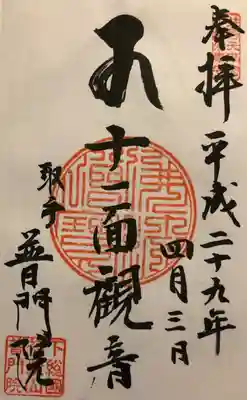 奉拝 平成二十九年
四月三日
十一面觀音
取手
普門院